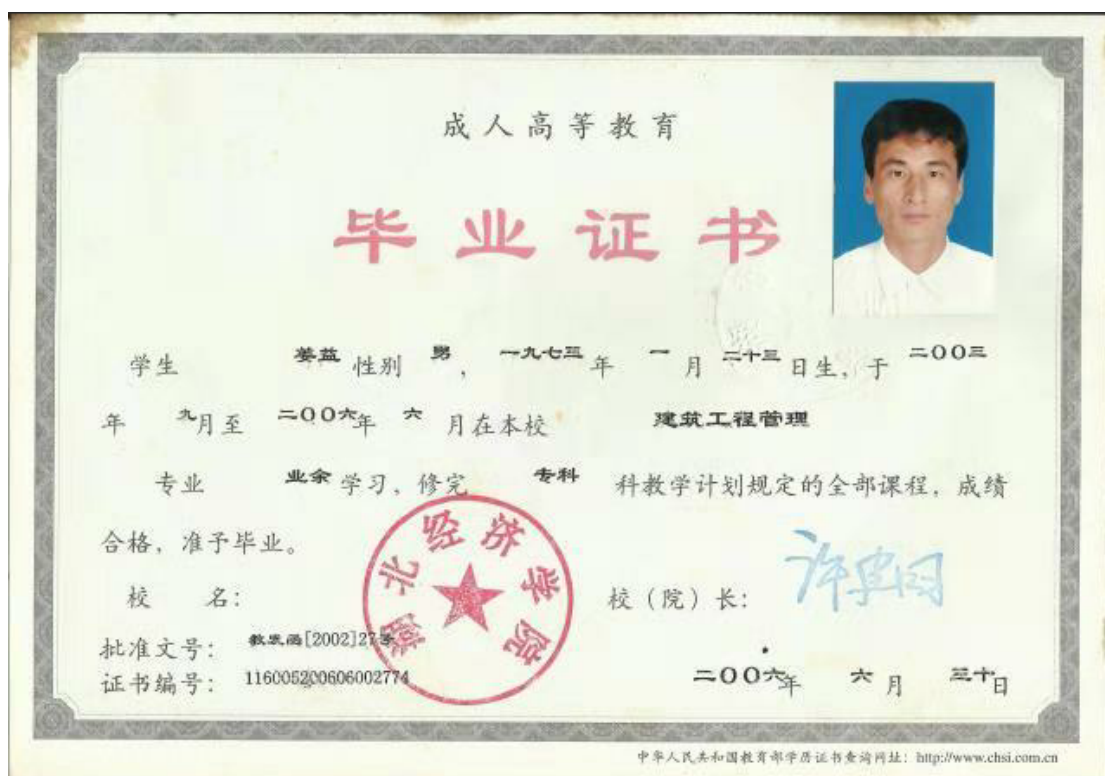 成人高等教育
毕业证书
学生 姜益 性别 男 ， 一九七三 年 一 月 二十三 日生，于 二00三
年 九 月至 二00六 年 六 月在本校 建筑工程管理
专业 业余 学习，修完 专科 科教学计划规定的全部课程，成绩
合格，准予毕业。
校 名： 湖北经济学院 校（院）长：
批准文号： 教发函[2002]27号
证书编号： 116005200606002774 二00六 年 六 月 三十 日
中华人民共和国教育部学历证书查询网址：http://www.chsi.com.cn